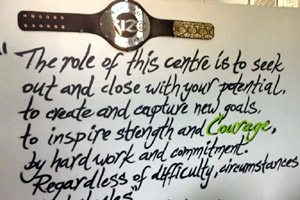 "The role of this centre is to seek
out and close with your potential,
to create and capture new goals,
to inspire strength and Courage,
by hard work and commitment.
Regardless of difficulty, circumstances